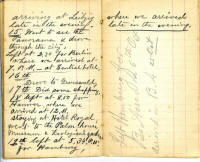 arriving at Leipzig
late in the evening.
15. Went to see the
Panorama & drove
through the city
left at 2.30 for Berlin
where we arrived at
7. P.M. - at Central hotel
16th
Drove to Grunewald
17th Did some shopping
18 left at 8.50 for
Hanover where we
arrived at 12.M.
staying at Hotel Royal
went to the Palm house
Museum & Zoological gardens
19th left at 5.38 P.M.
for Hamburg
where we arrived
late in the evening.